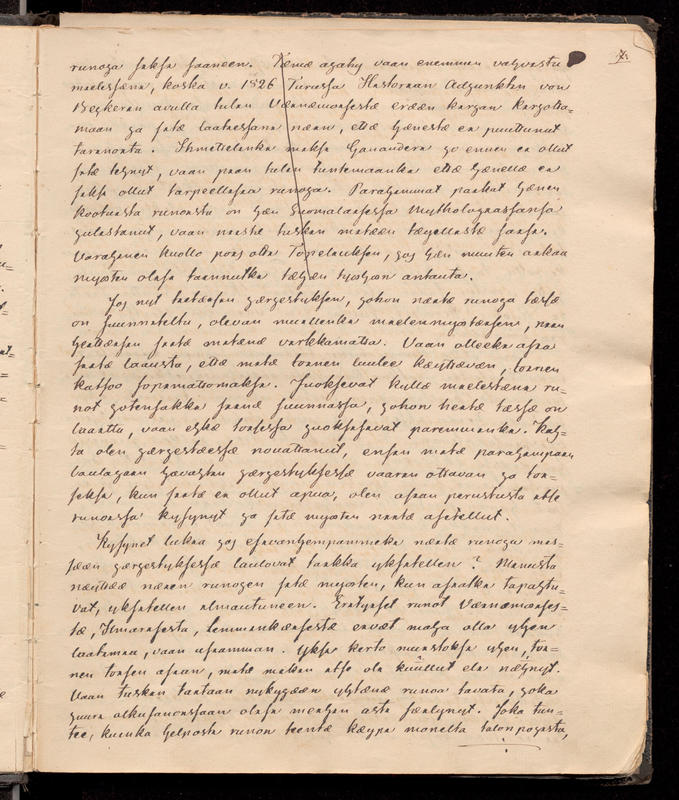 7.
runoja saksa saaneen. Tämä ajatus vaan enemmin vahvistu
mielessäni, koska v. 1826 Turussa Historian Adjunktin von
Bekkerin avulla tulin Väinämöisestä erään kirjan kirjotta=
maan ja sitä laatiessani näin, että hänestä ei puuttunut
tarinoita. Ihmettelinki miksi Ganander jo ennen ei ollut
sitä tehnyt, vaan pian tulin tuntemaanki että hänellä ei
siksi ollut tarpeellisia runoja. Parahimmat paikat hänen
kootuista runoista on hän Suomalaisessa Mythologiassansa
julistanut, vaan niistä tuskin mitään täydellistä saisi.
Varahinen kuollo pois otti Topeliuksen, jos hän muuten aikaa
myöten olisi tainnutki tähän työhön antauta.
Jos nyt taitaisin järjestyksen, johon näitä runoja tässä
on suunniteltu, olevan muillenki mielenmyötäisen, niin
heittäisin siitä mitänä virkkamatta. Vaan olleeki asia
sitä laausta, että mitä toinen luulee käyttävän, toinen
katsoo sopimattomaksi. Juoksevat kyllä mielestäni ru=
not jotensakki siinä suunnassa, johon heitä tässä on
laaittu, vaan ehkä toisessa juoksisivat paremminki. Kah=
ta olen järjestäessä nouattanut, ensin mitä parahimpain
laulajain havaihin järjestyksessä vaarin ottavan ja toi=
seksi, kun siitä ei ollut apua, olen asian perustusta itse
runoissa kysynyt ja sitä myöten niitä asetellut.
Kysynet lukia jos esivanhempammeki näitä runoja mes=
sään järjestyksessä lauloivat taikka yksitellen? Minusta
näyttää näien runojen sitä myöten, kun asiatki tapahtu=
vat, yksitellen ilmautuneen. Erityiset runot Väinämöises=
tä, Ilmarisesta, Lemminkäisestä eivät mahda olla yhden
laatimia, vaan usiamman. Yksi kerto muistoksi yhen, toi=
nen toisen asian, mitä mikin itse oli kuullut eli nähnyt.
Vaan tuskin taitaan nykyjään yhtänä runoa tavata, joka
juuri alkusanoissaan olisi meihin asti säilynyt. Joka tun=
tee, kuinka helposta runon teentä käypi monelta talonpojasta,